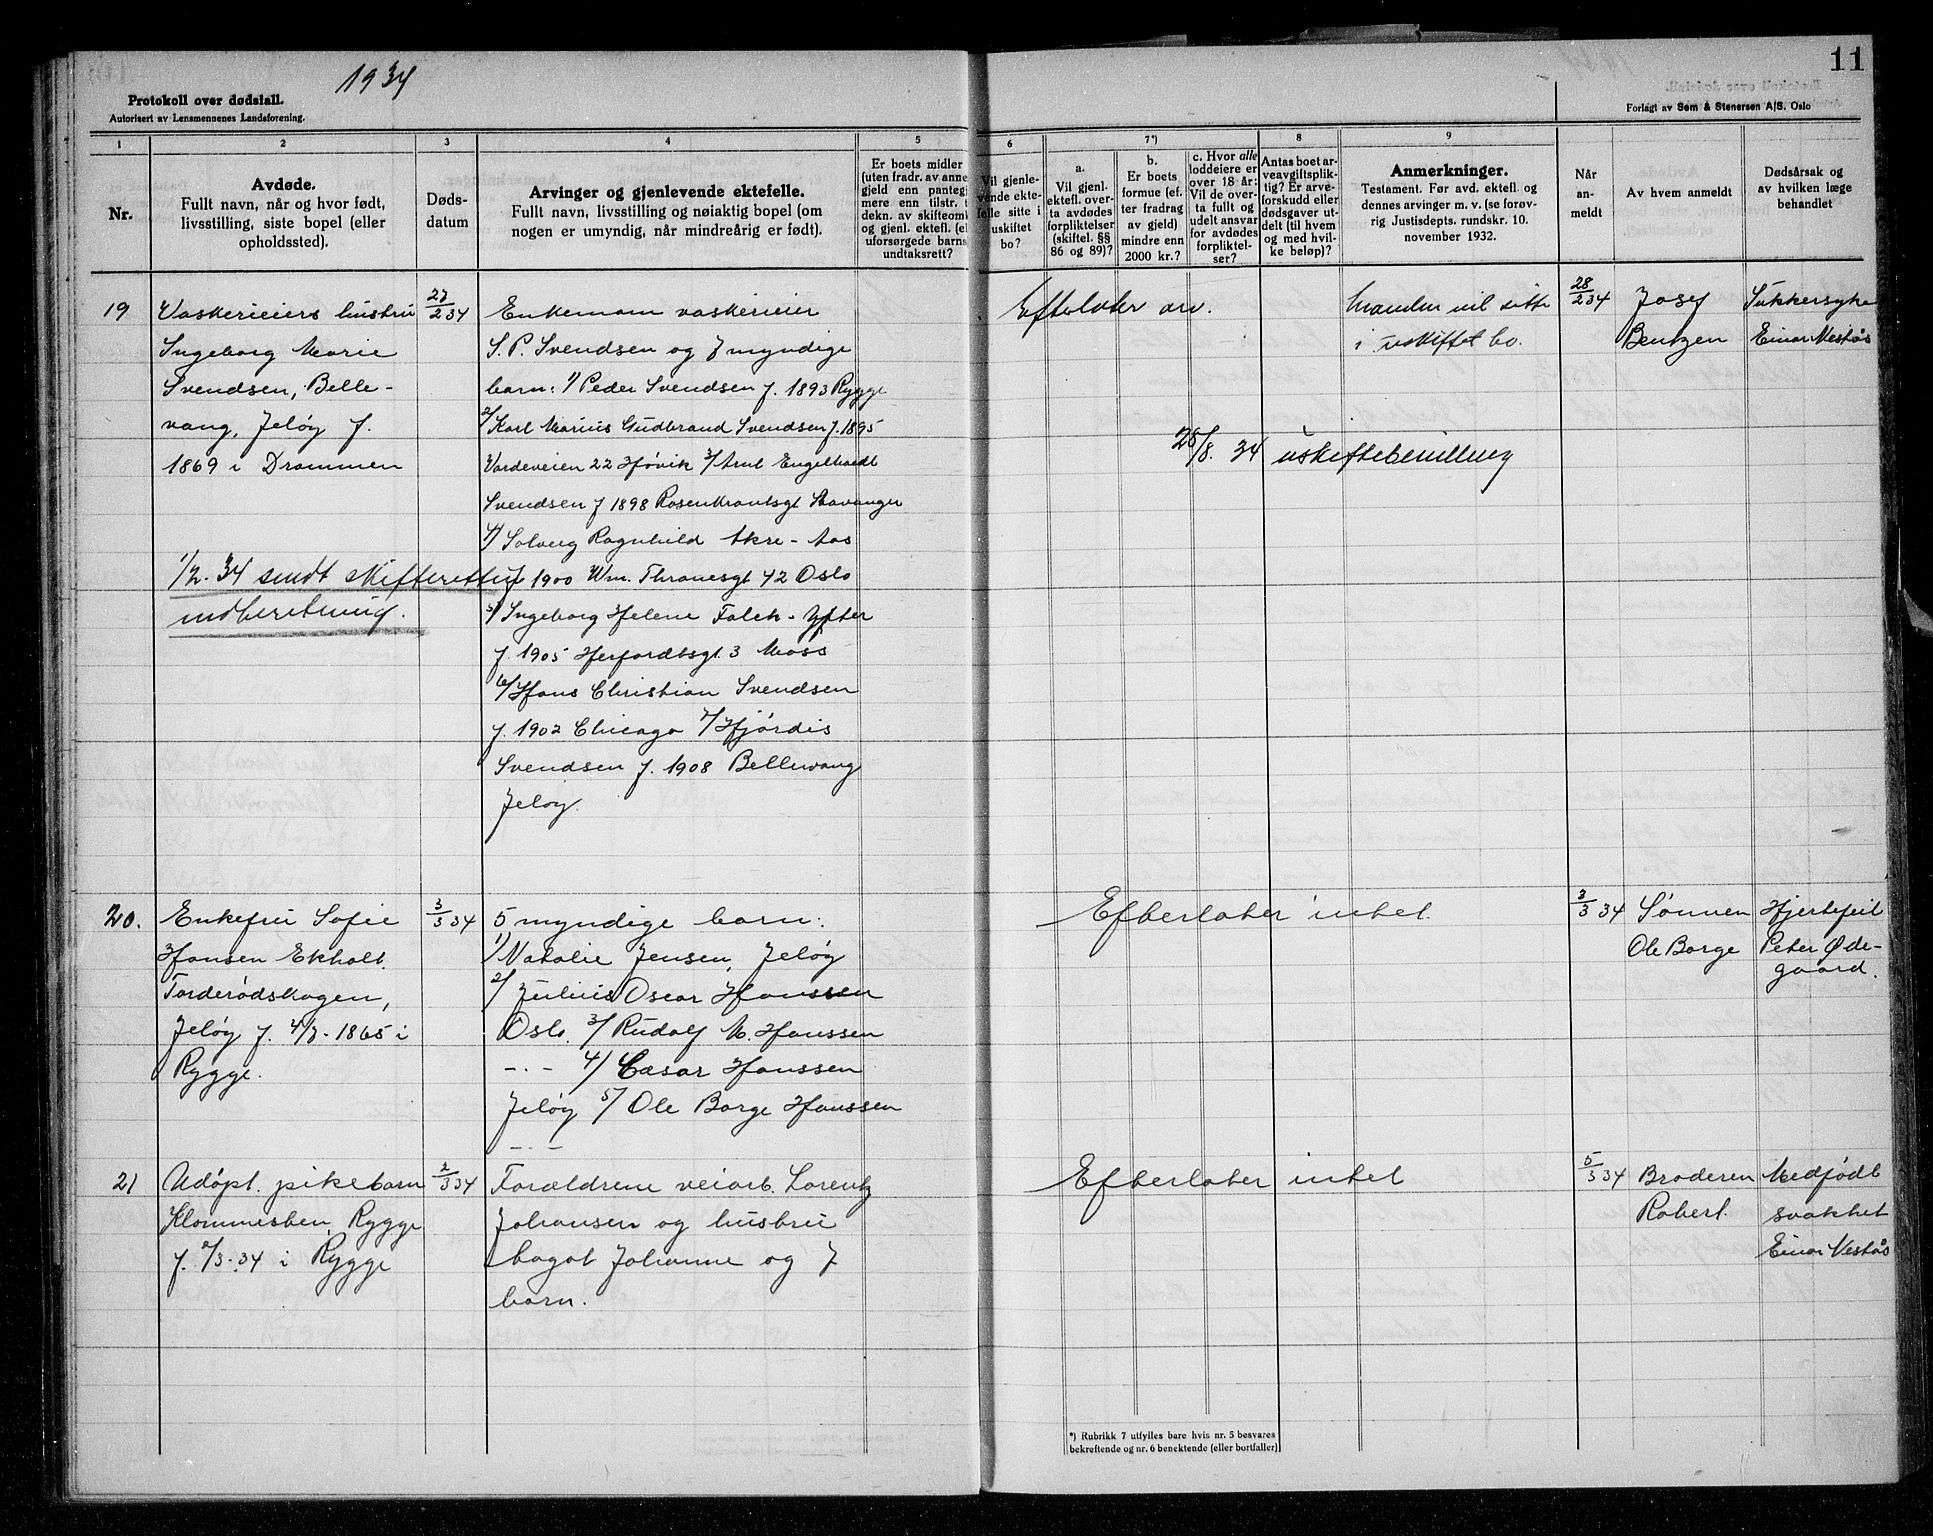 1934
11
Protokoll over dødsfall.
Autorisert av Lensmennenes Landsforening.
Forlagt av Sem & Stenersen A/S. Oslo
1 2 3 4 5 6 7*) 8 9
Nr.
Avdøde.
Fullt navn, når og hvor født,
livsstilling, siste bopel (eller
opholdssted).
Døds-
datum
Arvinger og gjenlevende ektefelle.
Fullt navn, livsstilling og nøiaktig bopel (om
nogen er umyndig, når mindreårig er født).
Er boets midler
(uten fradr. av anne
gjeld enn panteg
mere enn tilstr. t
dekn. av skifteom
og gjenl. ektefl. (el
uforsørgede barns
undtaksrett?
Vil gjenle-
vende ekte-
felle sitte i
uskiftet
bo?
a.
Vil gjenl.
ektefl. over-
ta avdødes
forpliktelser
(skiftel. §§
86 og 89)?
b.
Er boets
formue (ef-
ter fradrag
av gjeld)
mindre enn
2000 kr.?
c. Hvor alle
loddeiere er
over 18 år:
Vil de over-
ta fullt og
udelt ansvar
for avdødes
forpliktel-
ser?
Antas boet ar-
veavgiftsplik-
tig? Er arve-
forskudd eller
dødsgaver ut-
delt (til hvem
og med hvil-
ke beløp)?
Anmerkninger.
Testament. Før avd. ektefl. og
dennes arvinger m. v. (se forøv-
rig Justisdepts. rundskr. 10.
november 1932.
Når
an-
meldt
Av hvem anmeldt
Dødsårsak og
av hvilken læge
behandlet
19
Vaskerieiers hustru
Ingeborg Marie
Svendsen, Belle-
vang, Jeløy f.
1869 i Drammen
27/2 34
Enkemann vaskerieier
S. P. Svendsen og 7 myndige
barn: 1/ Peder Svendsen f. 1893 Rygge
2/ Karl Marius Gudbrand Svendsen f. 1895
Vardeveien 22 Høvik 3/ Arnt Engelhardt
Svendsen f 1898 Rosenkrantsgt Stavanger
4/ Solveig Ragnhild Akre - Aas
f 1900 Wm. Thranesgt 42 Oslo
5/ Ingeborg Helene Falch - Yfter
f. 1905 Herfordtsgt. 3 Moss
6/ Hans Christian Svendsen
f. 1902 Chicago 7/ Hjørdis
Svendsen f. 1908 Bellevang
Jeløy.
1/2. 34 sendt skifteretten
indberetning.
Efterlater arv.
Manden vil sitte
i uskiftet bo.
28/8. 34 uskiftebevilling
28/2 34
Josef
Bentzen
Sukkersyke
Einar Vestås
20.
Enkefru Sofie
Hansen Ekholt.
Torderødskogen,
Jeløy f. 4/7-1865 i
Rygge.
3/3 34
5 myndige barn:
1/ Natalie Jensen, Jeløy
2/ Julius Oscar Hanssen
Oslo. 3/ Rudolf M. Hanssen
- . - 4/ Cæsar Hanssen
Jeløy 5/ Ole Borge Hanssen
- . -
Efterlater intet.
3/3 34
Sønnen
Ole Borge
Hjertefeil
Peter Øde-
gaard.
21
Udøpt. pikebarn
Klommesten, Rygge
f. 2/3-34 i Rygge
2/3 34
Forældrene veiarb. Lorentz
Johansen og hustru
Dagot Johanne og 7
barn.
Efterlater intet
5/3 34
Broderen
Robert.
Medfødt
svakhet
Einar Vestås
*) Rubrikk 7 utfylles bare hvis nr. 5 besvares
bekreftende og nr. 6 benektende (eller bortfaller)